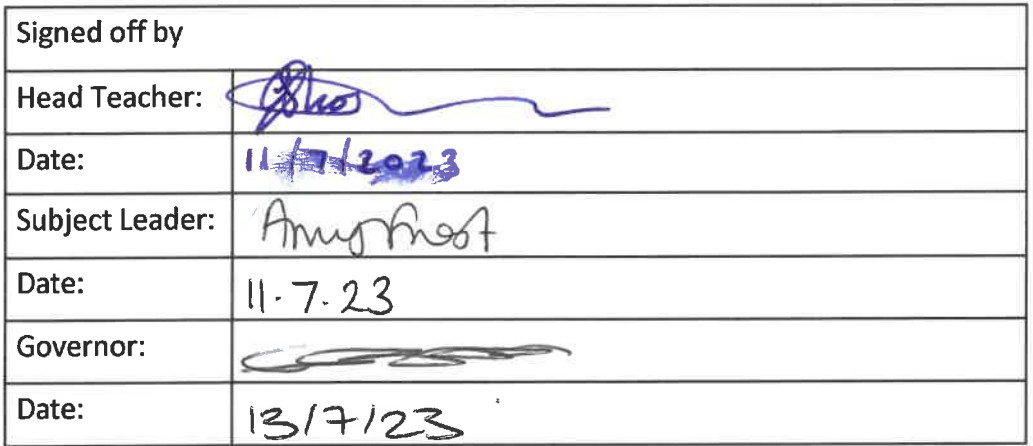 Signed off by
Head Teacher:
Date: 11/7/2023
Subject Leader: Amy Frost
Date: 11.7.23
Governor:
Date: 13/7/23